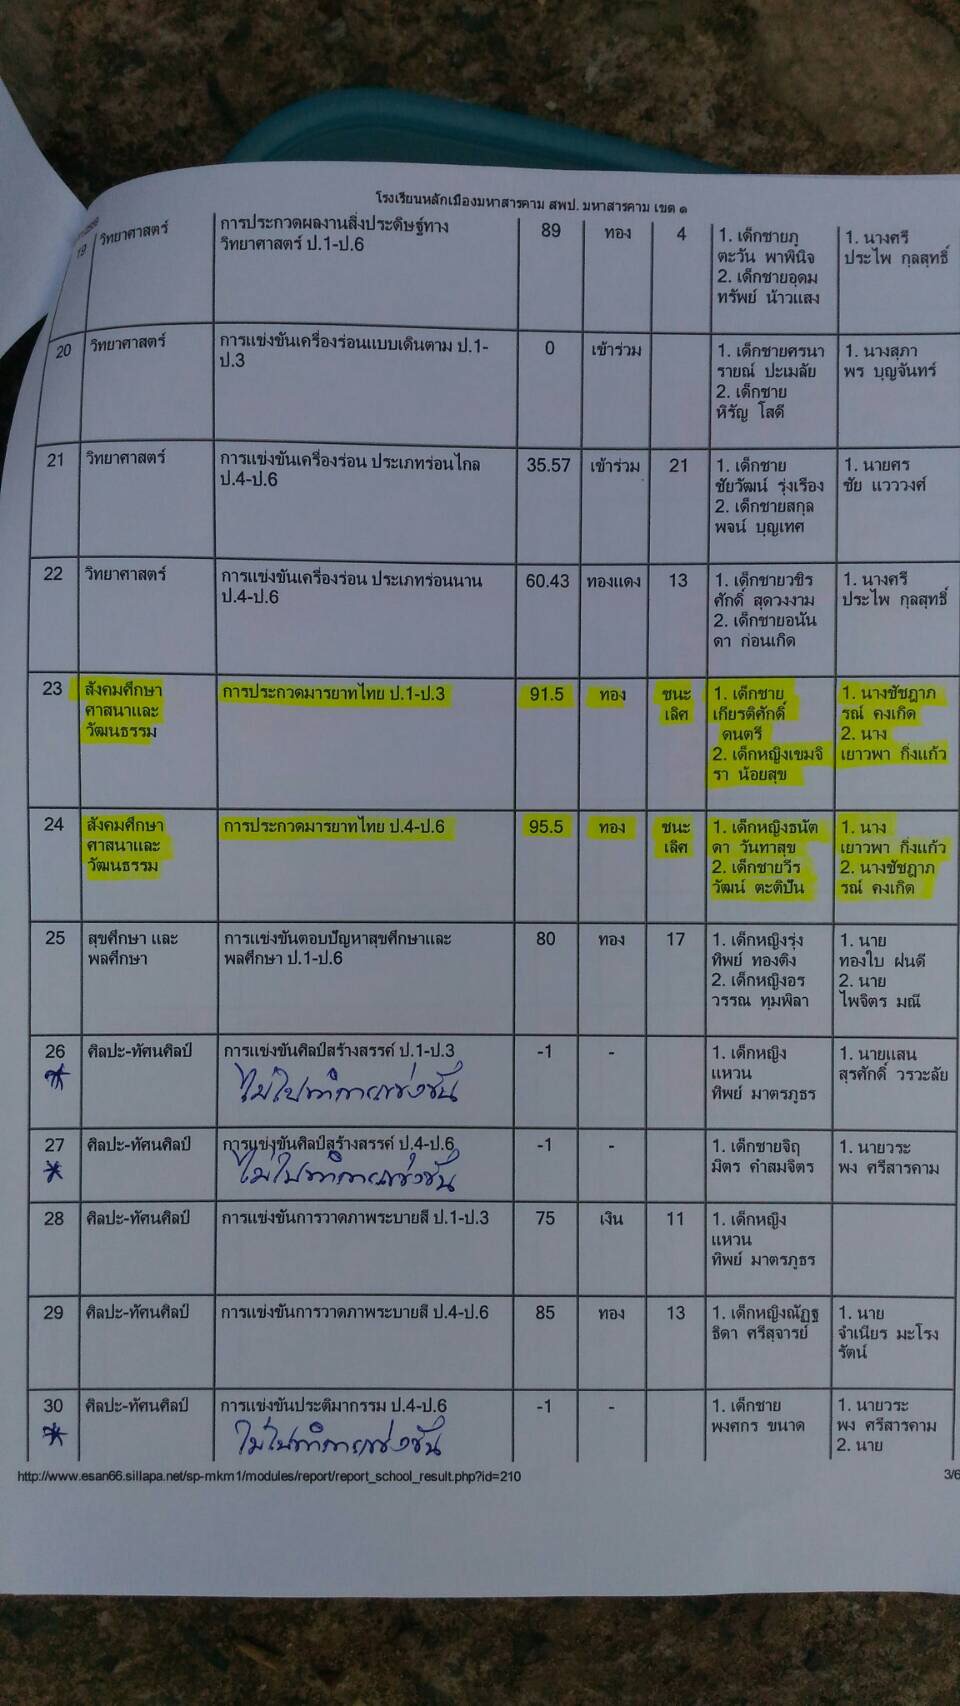 โรงเรียนหลักเมืองมหาสารคาม สพป. มหาสารคาม เขต ๑
19 วิทยาศาสตร์ การประกวดผลงานสิ่งประดิษฐ์ทาง 89 ทอง 4 1. เด็กชายภู 1. นางศรี
วิทยาศาสตร์ ป.1-ป.6 ตะวัน พาพินิจ ประไพ กุลสุทธิ์
2. เด็กชายอุดม
ทรัพย์ น้าวแสง
20 วิทยาศาสตร์ การแข่งขันเครื่องร่อนแบบเดินตาม ป.1- 0 เข้าร่วม 1. เด็กชายศรนา 1. นางสุภา
ป.3 รายณ์ ปะเมลัย พร บุญจันทร์
2. เด็กชาย
หิรัญ โสดี
21 วิทยาศาสตร์ การแข่งขันเครื่องร่อน ประเภทร่อนไกล 35.57 เข้าร่วม 21 1. เด็กชาย 1. นายศร
ป.4-ป.6 ชัยวัฒน์ รุ่งเรือง ชัย แวววงศ์
2. เด็กชายสกุล
พจน์ บุญเทศ
22 วิทยาศาสตร์ การแข่งขันเครื่องร่อน ประเภทร่อนนาน 60.43 ทองแดง 13 1. เด็กชายวชิร 1. นางศรี
ป.4-ป.6 ศักดิ์ สุดวงงาม ประไพ กุลสุทธิ์
2. เด็กชายอนัน
ดา ก่อนเกิด
23 สังคมศึกษา การประกวดมารยาทไทย ป.1-ป.3 91.5 ทอง ชนะ 1. เด็กชาย 1. นางชัชฎาภ
ศาสนาและ เลิศ เกียรติศักดิ์ รณ์ คงเกิด
วัฒนธรรม ดนตรี 2. นาง
2. เด็กหญิงเขมจิ เยาวพา กิ่งแก้ว
รา น้อยสุข
24 สังคมศึกษา การประกวดมารยาทไทย ป.4-ป.6 95.5 ทอง ชนะ 1. เด็กหญิงธนัต 1. นาง
ศาสนาและ เลิศ ดา วันทาสุข เยาวพา กิ่งแก้ว
วัฒนธรรม 2. เด็กชายวีร 2. นางชัชฎาภ
วัฒน์ ตะติปัน รณ์ คงเกิด
25 สุขศึกษา และ การแข่งขันตอบปัญหาสุขศึกษาและ 80 ทอง 17 1. เด็กหญิงรุ่ง 1. นาย
พลศึกษา พลศึกษา ป.1-ป.6 ทิพย์ ทองติง ทองใบ ฝนดี
2. เด็กหญิงอร 2. นาย
วรรณ ทุมพิลา ไพจิตร มณี
26 ศิลปะ-ทัศนศิลป์ การแข่งขันศิลป์สร้างสรรค์ ป.1-ป.3 -1 - 1. เด็กหญิง 1. นายแสน
ไม่ไปทำการแข่งขัน แหวน สุรศักดิ์ วรวะลัย
ทิพย์ มาตรภูธร
27 ศิลปะ-ทัศนศิลป์ การแข่งขันศิลป์สร้างสรรค์ ป.4-ป.6 -1 - 1. เด็กชายจิฤ 1. นายวระ
ไม่ไปทำการแข่งขัน มิตร คำสมจิตร พง ศรีสารคาม
28 ศิลปะ-ทัศนศิลป์ การแข่งขันการวาดภาพระบายสี ป.1-ป.3 75 เงิน 11 1. เด็กหญิง
แหวน
ทิพย์ มาตรภูธร
29 ศิลปะ-ทัศนศิลป์ การแข่งขันการวาดภาพระบายสี ป.4-ป.6 85 ทอง 13 1. เด็กหญิงณัฏฐ 1. นาย
ธิดา ศรีสุจารย์ จำเนียร มะโรง
รัตน์
30 ศิลปะ-ทัศนศิลป์ การแข่งขันประติมากรรม ป.4-ป.6 -1 - 1. เด็กชาย 1. นายวระ
ไม่ไปทำการแข่งขัน พงศกร ขนาด พง ศรีสารคาม
2. นาย
http://www.esan66.sillapa.net/sp-mkm1/modules/report/report_school_result.php?id=210 3/6